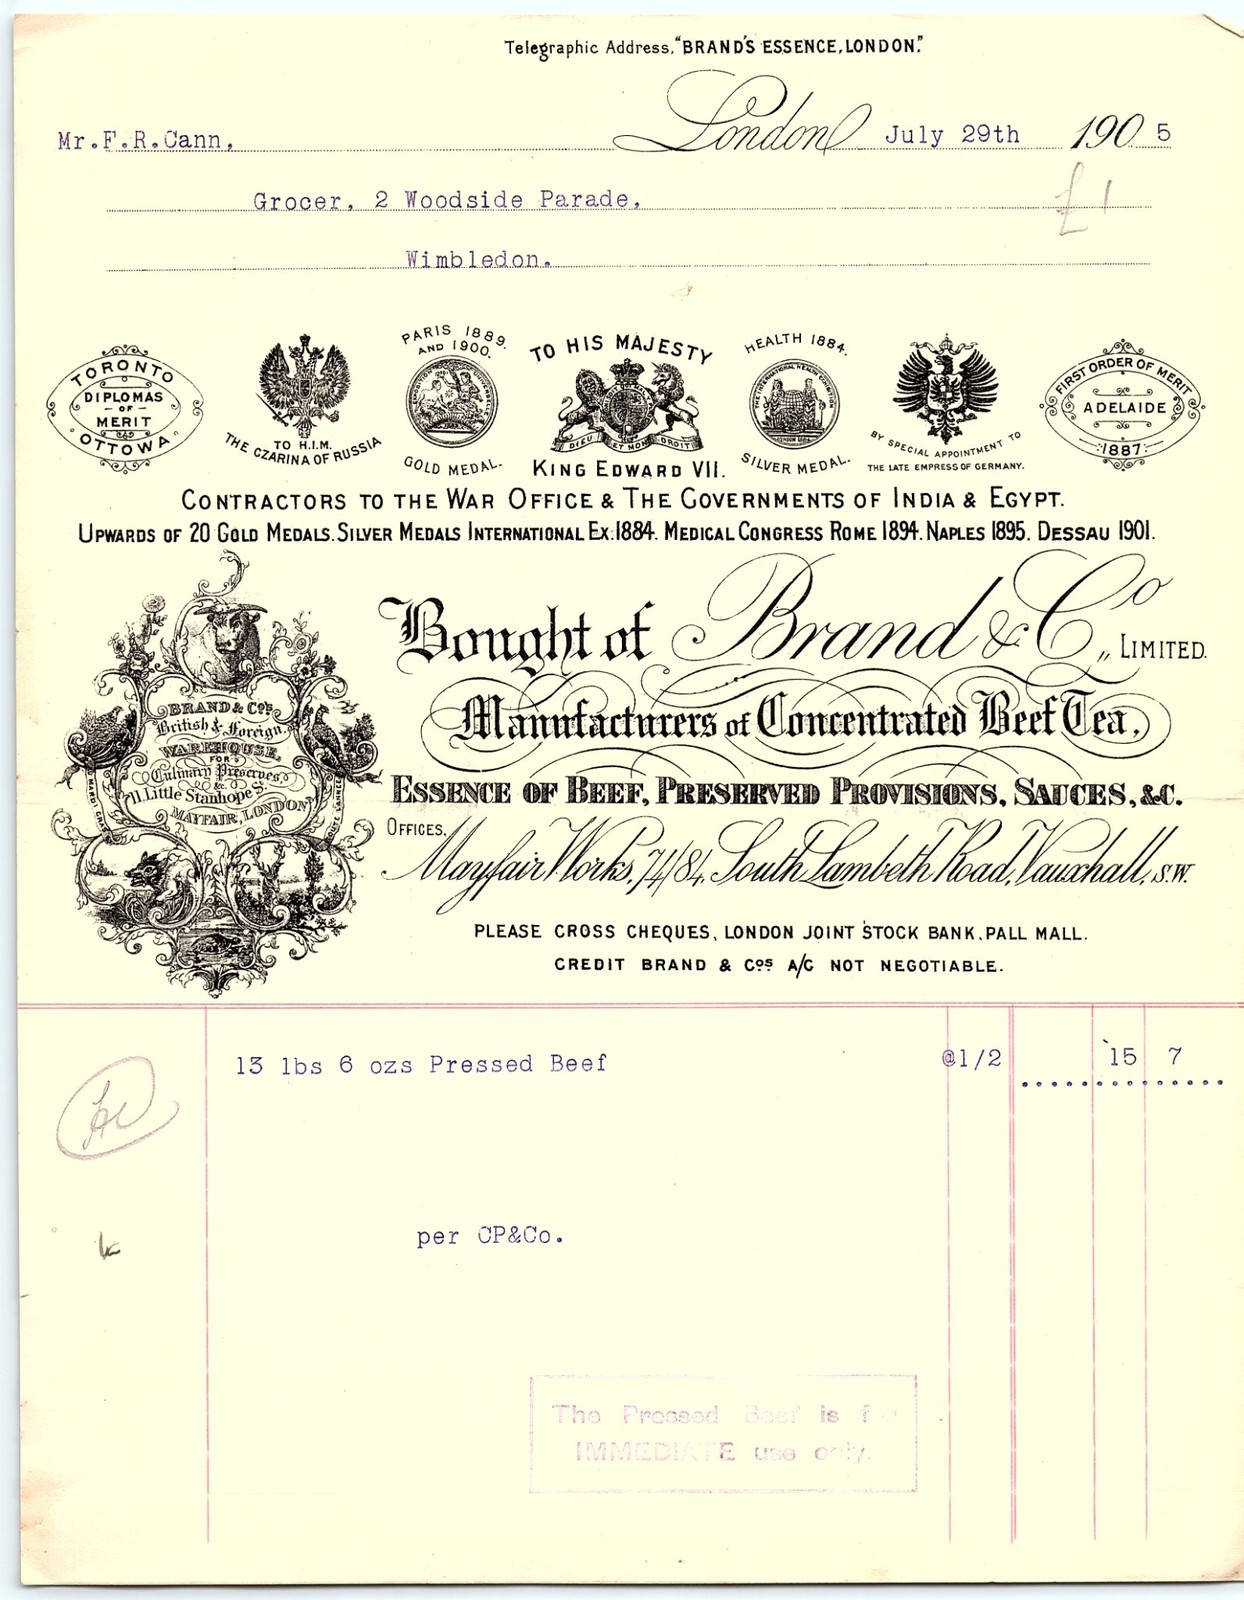 Telegraphic Address, "BRAND'S ESSENCE, LONDON."
London July 29th 190 5
Mr.F.R.Cann,
£1
Grocer, 2 Woodside Parade,
Wimbledon.
TORONTO
DIPLOMAS
OF
MERIT
OTTOWA
TO H.I.M.
THE CZARINA OF RUSSIA
PARIS 1889.
AND 1900.
GOLD MEDAL.
TO HIS MAJESTY
DIEU ET MON DROIT
KING EDWARD VII.
HEALTH 1884.
SILVER MEDAL.
BY SPECIAL APPOINTMENT TO
THE LATE EMPRESS OF GERMANY.
FIRST ORDER OF MERIT
ADELAIDE
1887
CONTRACTORS TO THE WAR OFFICE & THE GOVERNMENTS OF INDIA & EGYPT.
UPWARDS OF 20 GOLD MEDALS. SILVER MEDALS INTERNATIONAL EX: 1884. MEDICAL CONGRESS ROME 1894. NAPLES 1895. DESSAU 1901.
Bought of Brand & Co., LIMITED.
Manufacturers of Concentrated Beef Tea,
ESSENCE OF BEEF, PRESERVED PROVISIONS, SAUCES, &C.
BRAND & Cos
British & Foreign
WAREHOUSE,
FOR
Culinary Preserves
&c
11 Little Stanhope St
MAYFAIR, LONDON
OFFICES,
Mayfair Works, 74/84, South Lambeth Road, Vauxhall, S.W.
PLEASE CROSS CHEQUES, LONDON JOINT STOCK BANK, PALL MALL.
CREDIT BRAND & Cos A/C NOT NEGOTIABLE.
13 lbs 6 ozs Pressed Beef @1/2 15 7
per CP&Co.
The Pressed Beef is
IMMEDIATE use only.